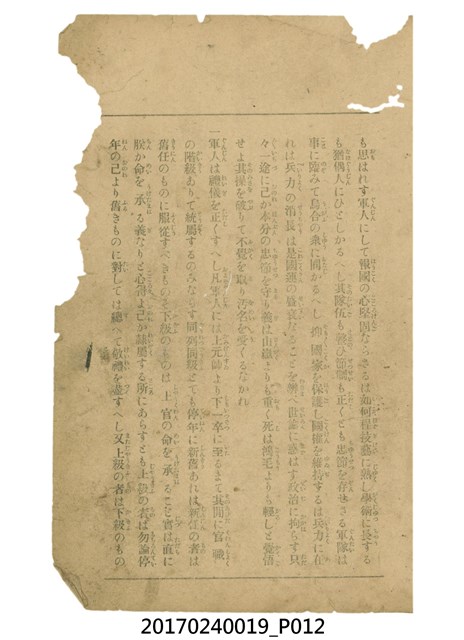 も思はれす軍人にして報國の心堅固ならさるは如何程技藝に熟し學術に長する
も猶偶人にひとしかるへし其隊伍も整ひ節制も正くとも忠節を存せさる軍隊は
事に臨みて烏合の衆に同かるへし抑國家を保護し國權を維持するは兵力に在
れは兵力の消長は是國運の盛衰なることを辨へ世論に惑はす政治に拘らす只
々一途に己か本分の忠節を守り義は山嶽よりも重く死は鴻毛よりも輕しと覺悟
せよ其操を破りて不覺を取り汚名を受くるなかれ
一軍人は禮儀を正くすへし凡軍人には上元帥より下一卒に至るまて其間に官職
の階級ありて統屬するのみならす同列同級とても停年に新舊あれは新任の者は
舊任のものに服從すへきものそ下級のものは上官の命を承ること實は直に
朕か命を承る義なりと心得よ己か隷屬する所にあらすとも上級の者は勿論停
年の己より舊きものに對しては總へて敬禮を盡すへし又上級の者は下級のもの
20170240019_P012